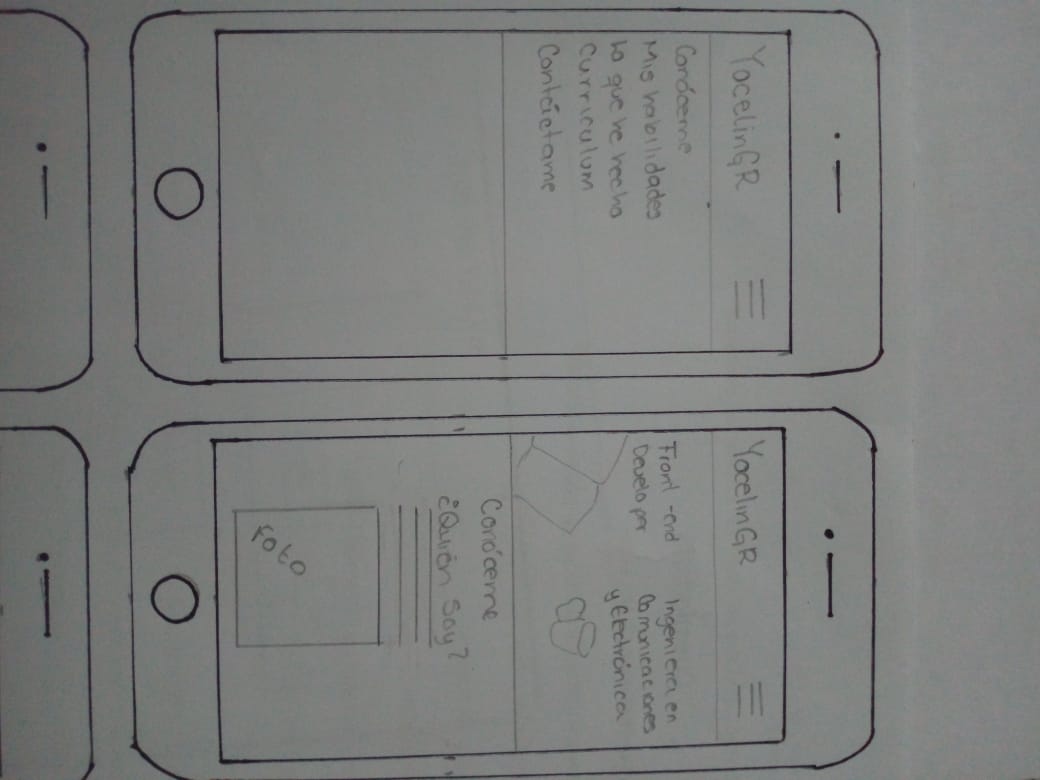 YocelinGR
Conóceme
Mis habilidades
Lo que he hecho
Curriculum
Contáctame
YocelinGR
Front-end
Developer
Ingeniera en
Comunicaciones
y Electrónica
Conóceme
¿Quién Soy?
foto